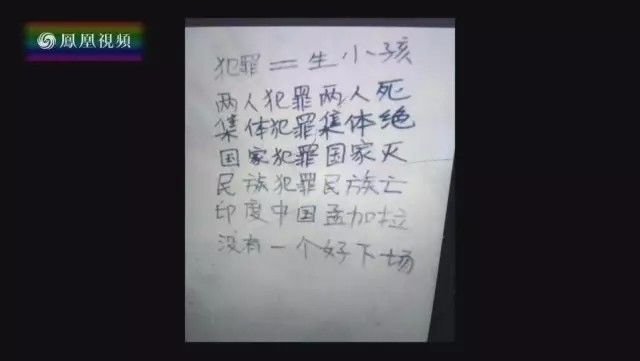 鳳凰視頻
犯罪＝生小孩
两人犯罪两人死
集体犯罪集体绝
国家犯罪国家灭
民族犯罪民族亡
印度中国孟加拉
没有一个好下场